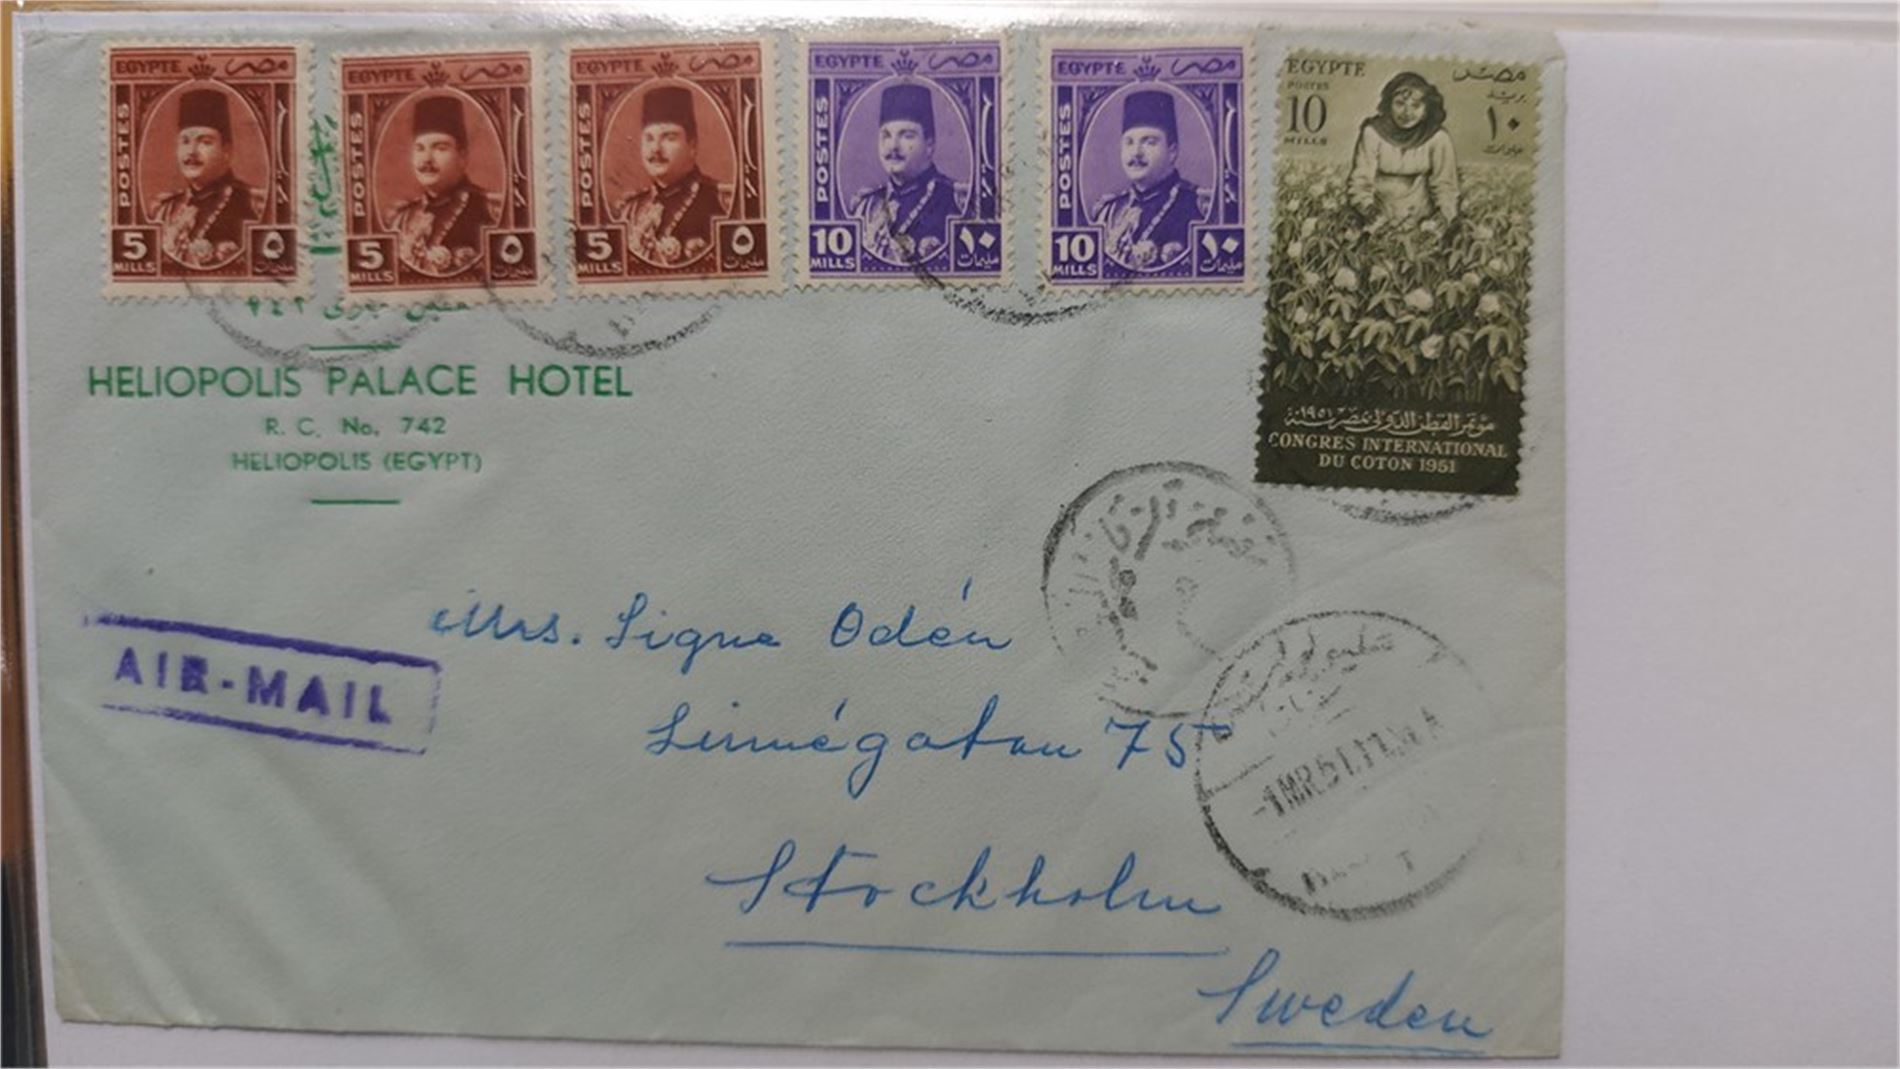 EGYPTE مصر
POSTES
5 ٥
MILLS مليمات
EGYPTE مصر
POSTES
5 ٥
MILLS مليمات
EGYPTE مصر
POSTES
5 ٥
MILLS مليمات
EGYPTE مصر
POSTES
10 ١٠
MILLS مليمات
EGYPTE مصر
POSTES
10 ١٠
MILLS مليمات
EGYPTE مصر
POSTES بريد
10 ١٠
MILLS مليمات
مؤتمر القطن الدولى بمصر سنة ١٩٥١
CONGRES INTERNATIONAL
DU COTON 1951
٧٤٢
HELIOPOLIS PALACE HOTEL
R. C. No. 742
HELIOPOLIS (EGYPT)
AIR-MAIL
Mrs. Signe Odén
Linnégatan 75
Stockholm
Sweden
-1 MR.51.11